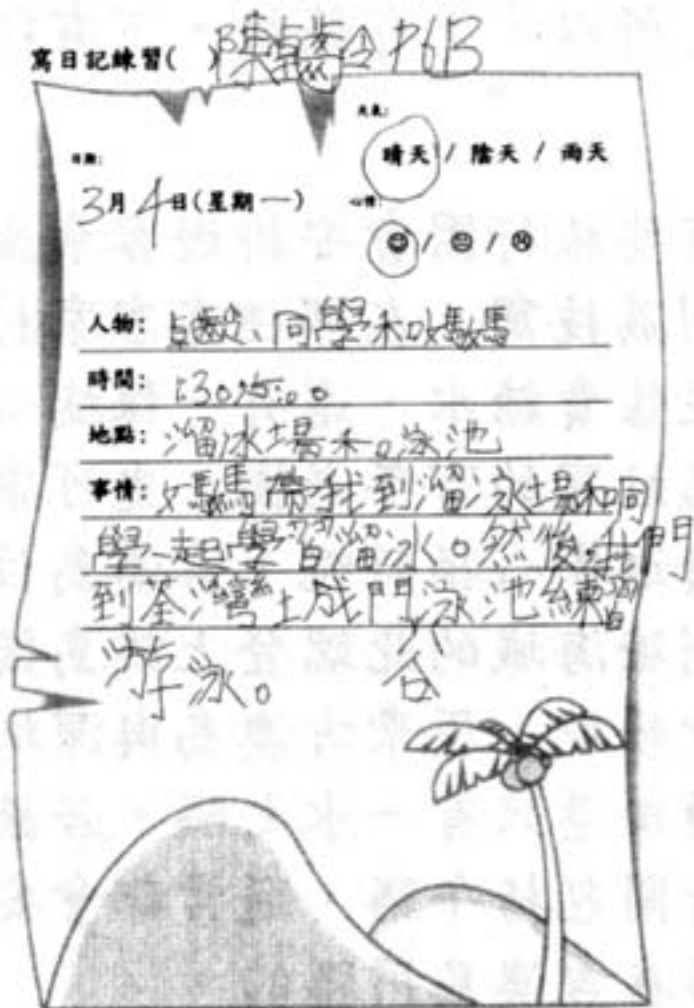 寫日記練習( ) 陳卓 P6B
天氣:
晴天 / 陰天 / 雨天
日期:
3月4日(星期一)
心情:
人物: 同學和媽媽
時間: 1:30
地點: 溜冰場和泳池
事情: 媽媽帶我到溜冰場和同
學一起學習溜冰。然後我門
到荃灣城門泳池練習
谷
游泳。